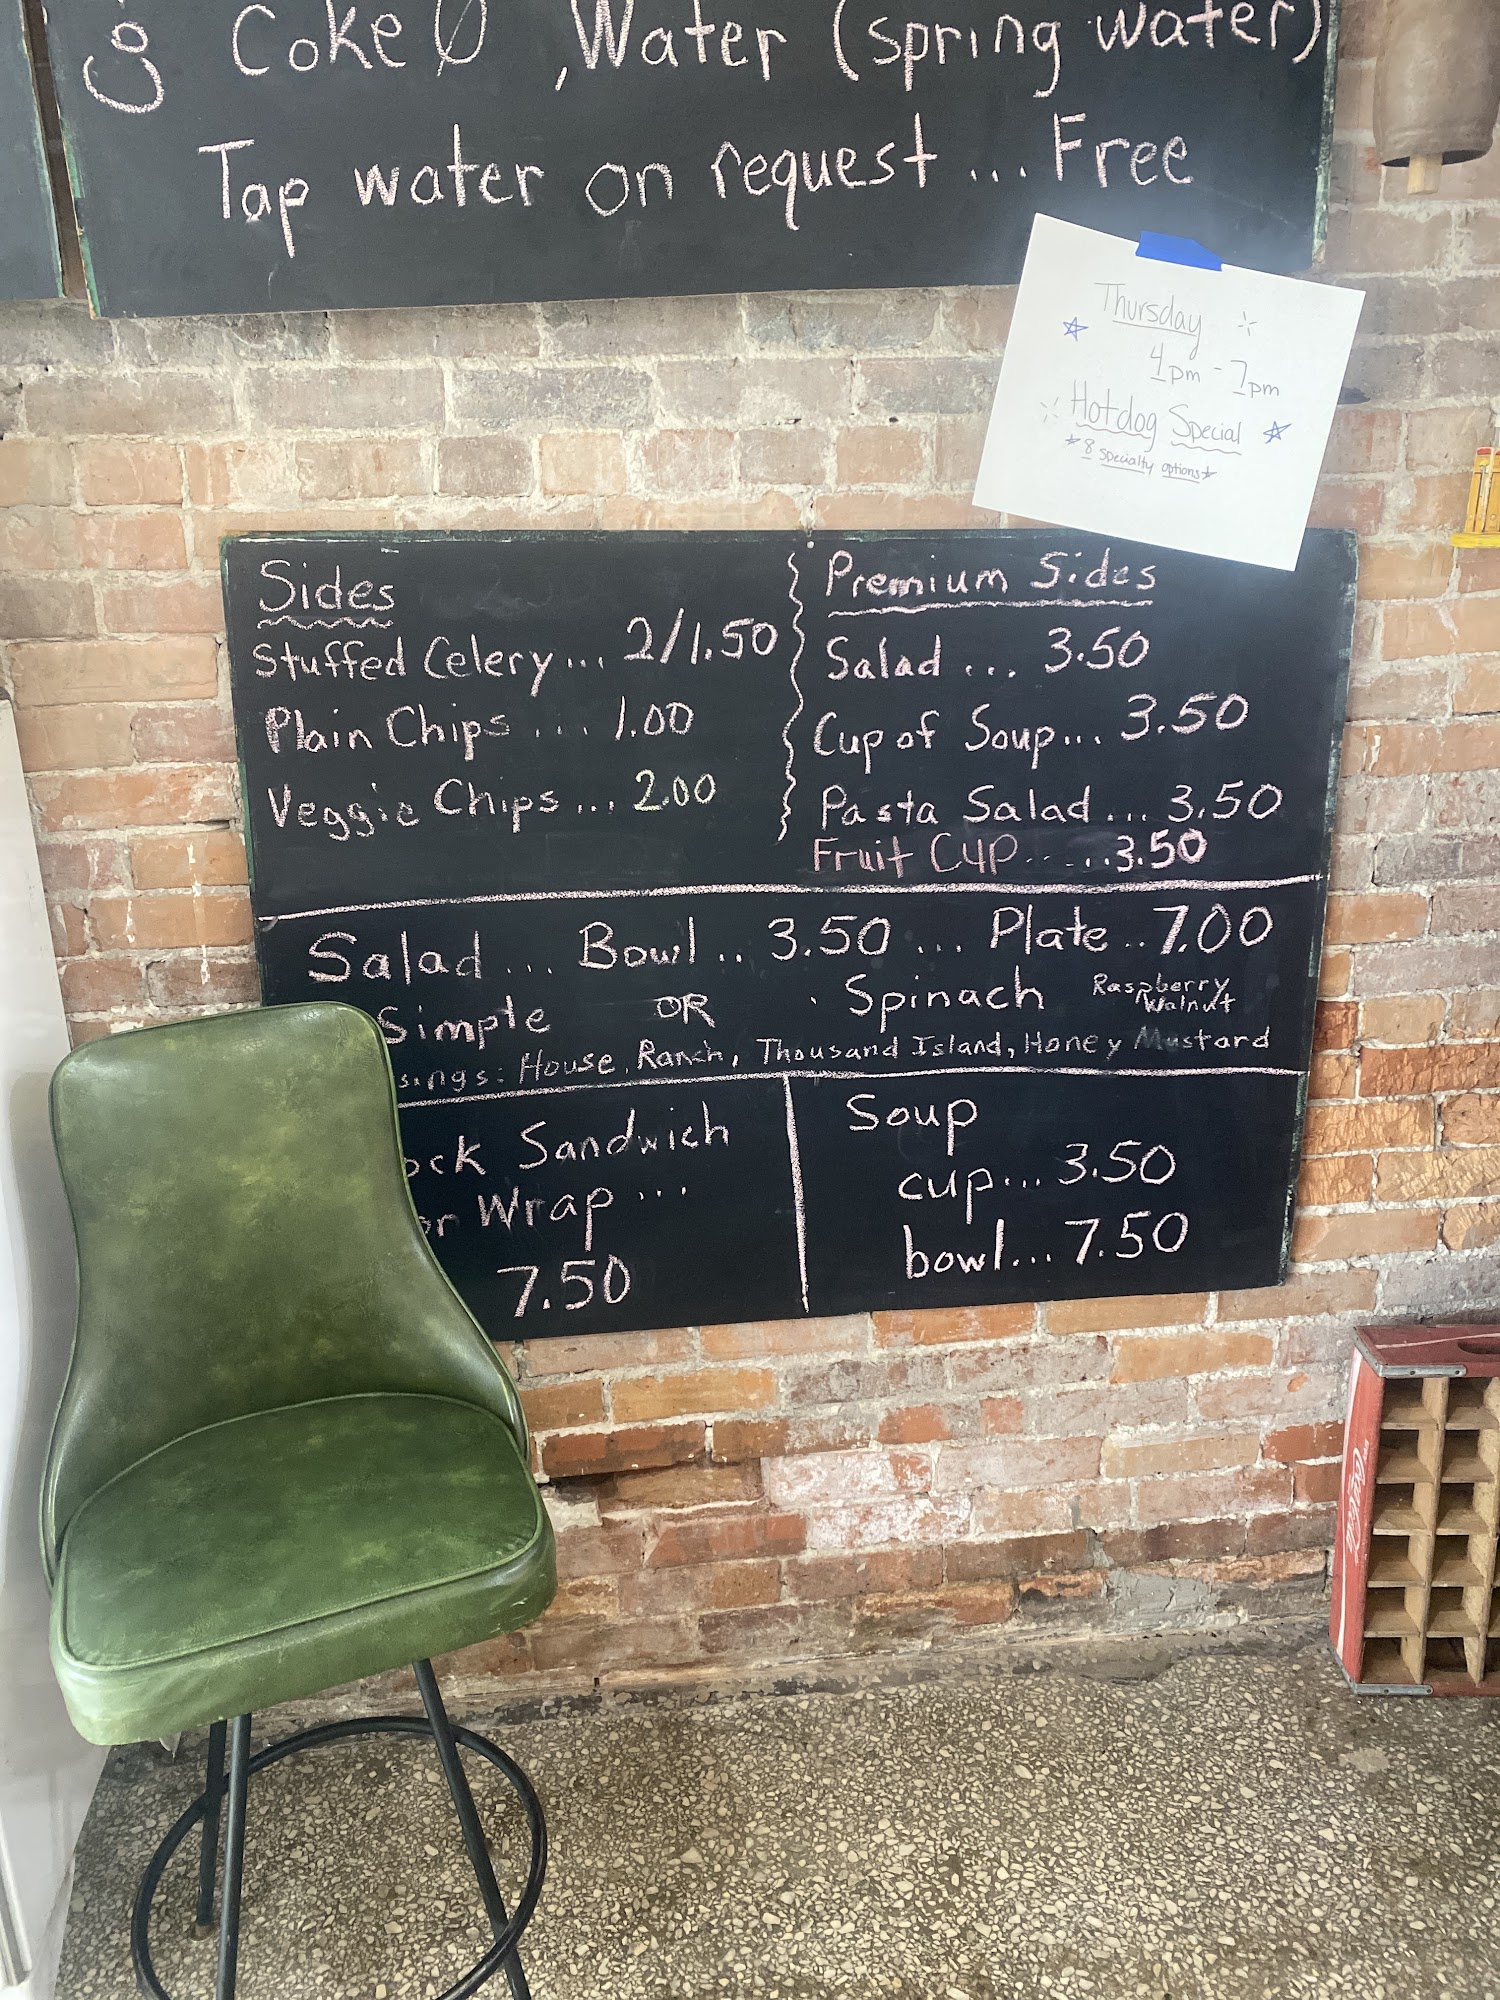 Coke Ø, Water (spring water)
Tap water on request ... Free
Thursday
4pm - 7pm
Hotdog Special
8 specialty options
Sides
Stuffed Celery ... 2/1.50
Plain Chips ... 1.00
Veggie Chips ... 2.00
Premium Sides
Salad ... 3.50
Cup of Soup ... 3.50
Pasta Salad ... 3.50
Fruit Cup ..... 3.50
Salad ... Bowl .. 3.50 ... Plate .. 7.00
Simple OR Spinach Raspberry Walnut
sings: House, Ranch, Thousand Island, Honey Mustard
ock Sandwich
or Wrap ...
7.50
Soup
cup ... 3.50
bowl ... 7.50
Coca-Cola